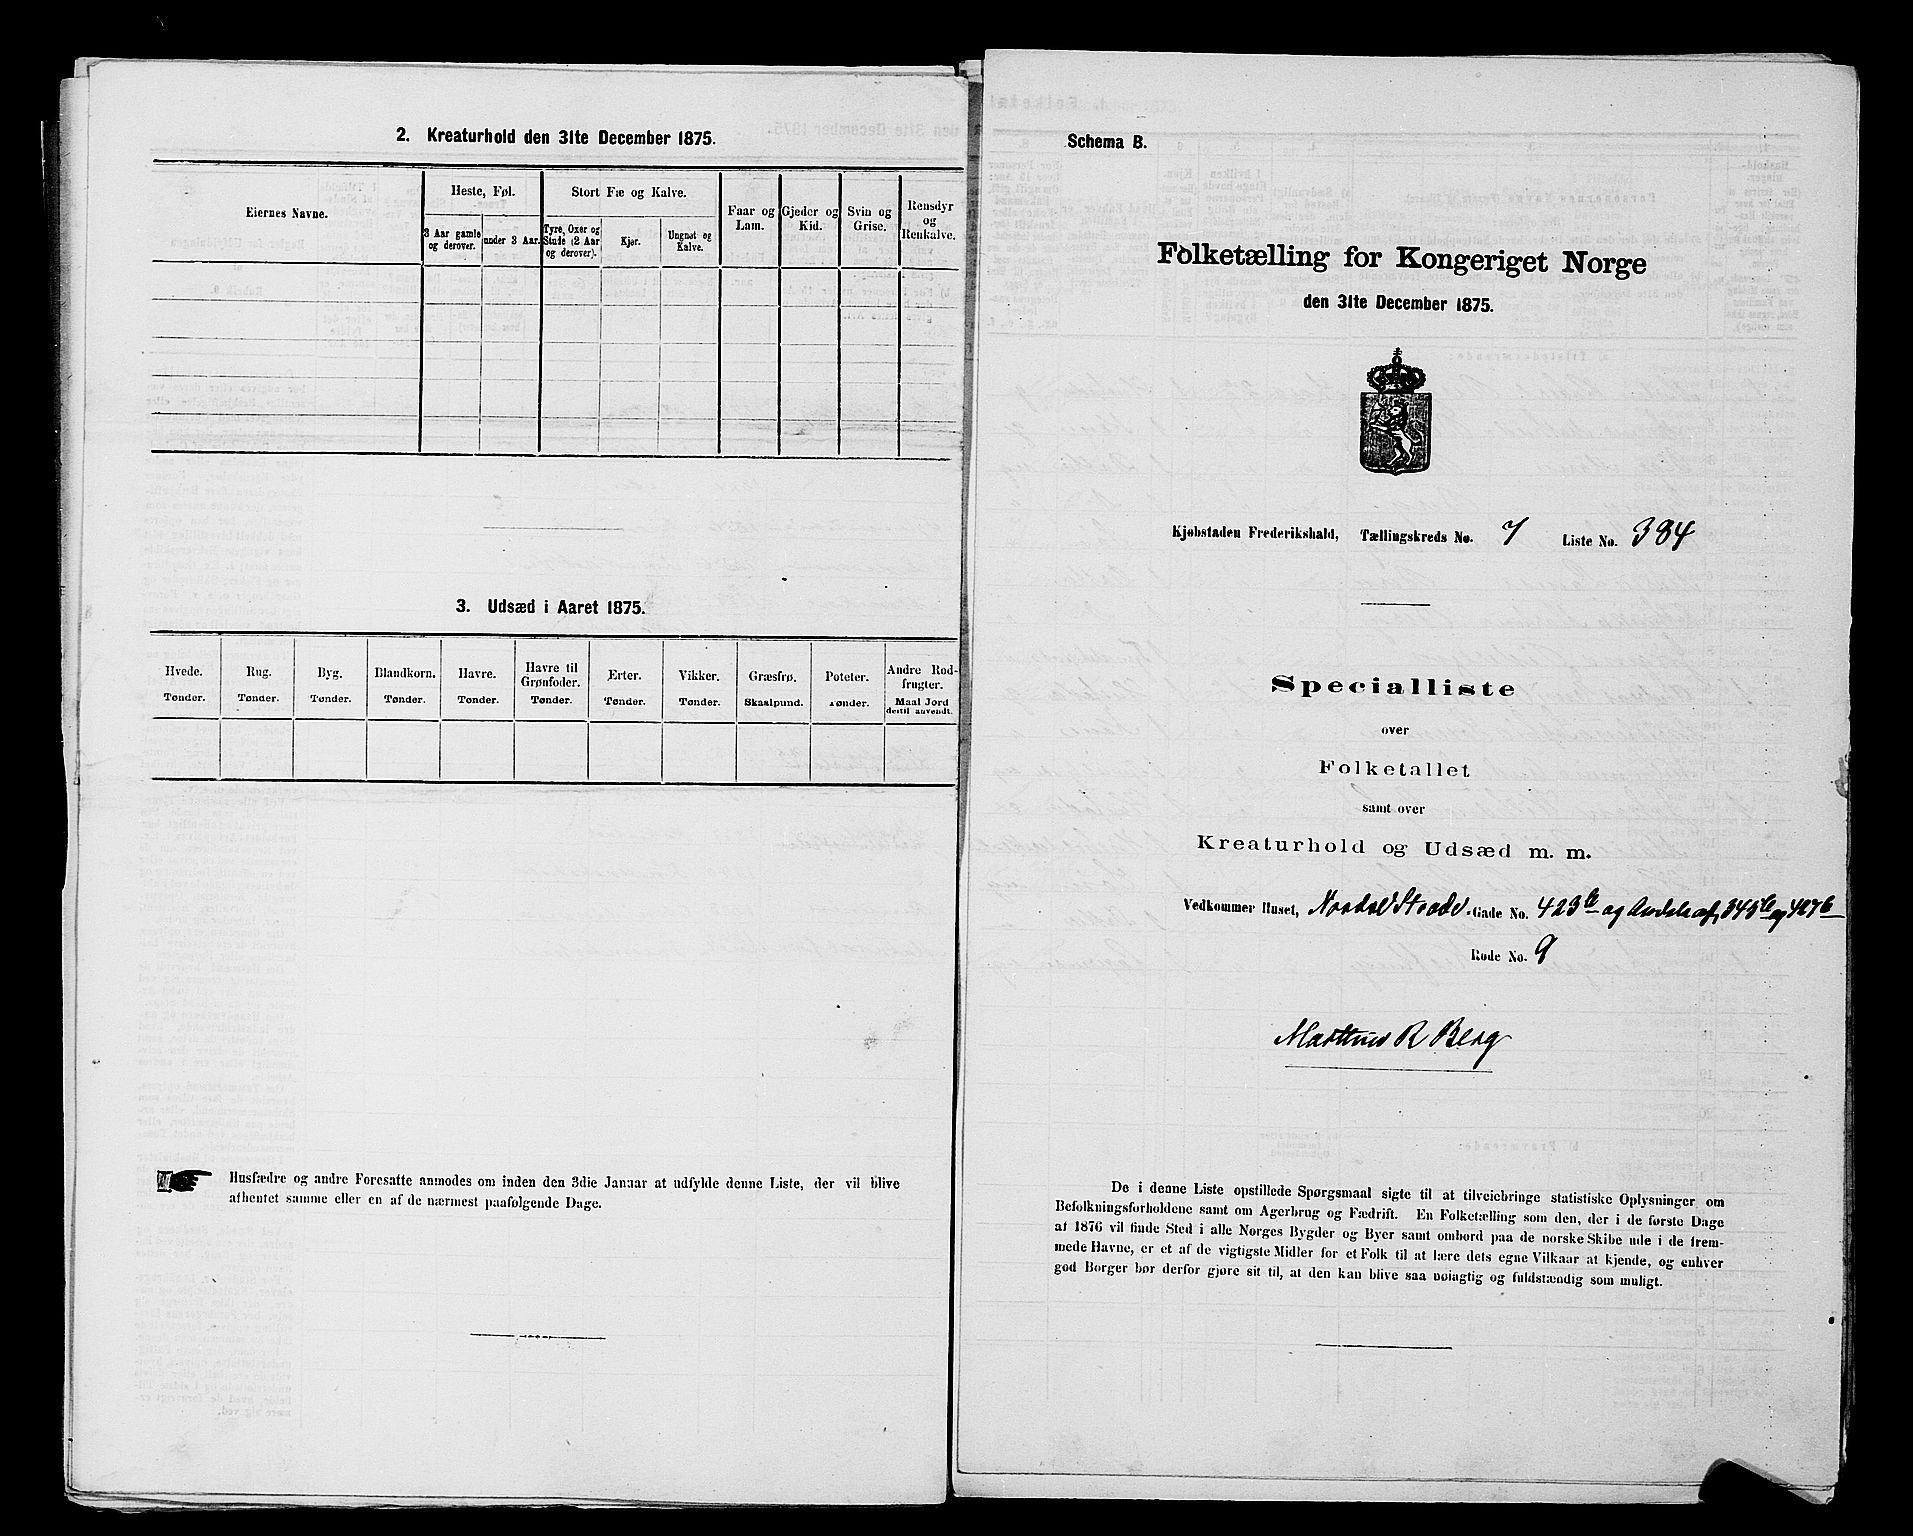 2. Kreaturhold den 31te December 1875.
Eiernes Navne.
Heste, Føl.
Stort Fæ og Kalve.
3 Aar gamle og derover.
under 3 Aar.
Tyre, Oxer og Stude (2 Aar og derover).
Kjør.
Ungnøt og Kalve.
Faar og Lam.
Gjeder og Kid.
Svin og Grise.
Rensdyr og Renkalve.
3. Udsæd i Aaret 1875.
Hvede. Rug. Byg. Blandkorn. Havre. Havre til Grønfoder. Erter. Vikker. Græsfrø. Poteter. Andre Rodfrugter.
Tønder. Tønder. Tønder. Tønder. Tønder. Tønder. Tønder. Tønder. Skaalpund. Tønder. Maal Jord dertil anvendt.
Husfædre og andre Foresatte anmodes om inden den 3die Januar at udfylde denne Liste, der vil blive
afhentet samme eller en af de nærmest paafølgende Dage.
Schema B.
Folketælling for Kongeriget Norge
den 31te December 1875.
Kjøbstaden Frederikshald, Tællingskreds No. 7 Liste No. 384
Specialliste
over
Folketallet
samt over
Kreaturhold og Udsæd m. m.
Vedkommer Huset, Gade No. 423 og 343 og
Rode No. 9
R Berg
De i denne Liste opstillede Spørgsmaal sigte til at tilveiebringe statistiske Oplysninger om
Befolkningsforholdene samt om Agerbrug og Fædrift. En Folketælling som den, der i de første Dage
af 1876 vil finde Sted i alle Norges Bygder og Byer samt ombord paa de norske Skibe ude i de frem-
mede Havne, er et af de vigtigste Midler for et Folk til at lære dets egne Vilkaar at kjende, og enhver
god Borger bør derfor gjøre sit til, at den kan blive saa nøiagtig og fuldstændig som muligt.